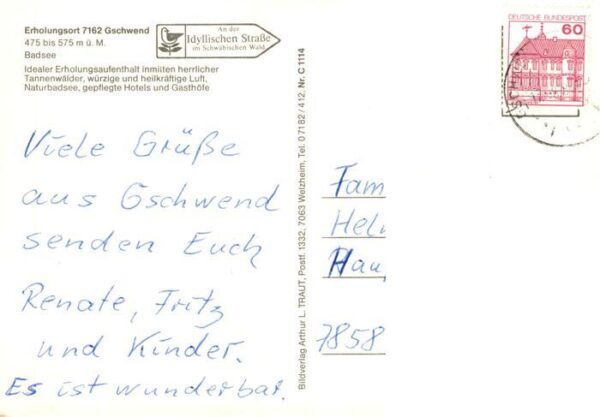 Erholungsort 7162 Gschwend
475 bis 575 m ü. M.
Badsee
Idealer Erholungsaufenthalt inmitten herrlicher
Tannenwälder, würzige und heilkräftige Luft,
Naturbadsee, gepflegte Hotels und Gasthöfe
An der
Idyllischen Straße
im Schwäbischen Wald
Viele Grüße
aus Gschwend
senden Euch
Renate, Fritz
und Kinder.
Es ist wunderbar.
Bildverlag Arthur L. TRAUT, Postf. 1332, 7063 Welzheim, Tel. 07182/412, Nr. C 1114
DEUTSCHE BUNDESPOST
60
Fam
Hel
Hau
7858